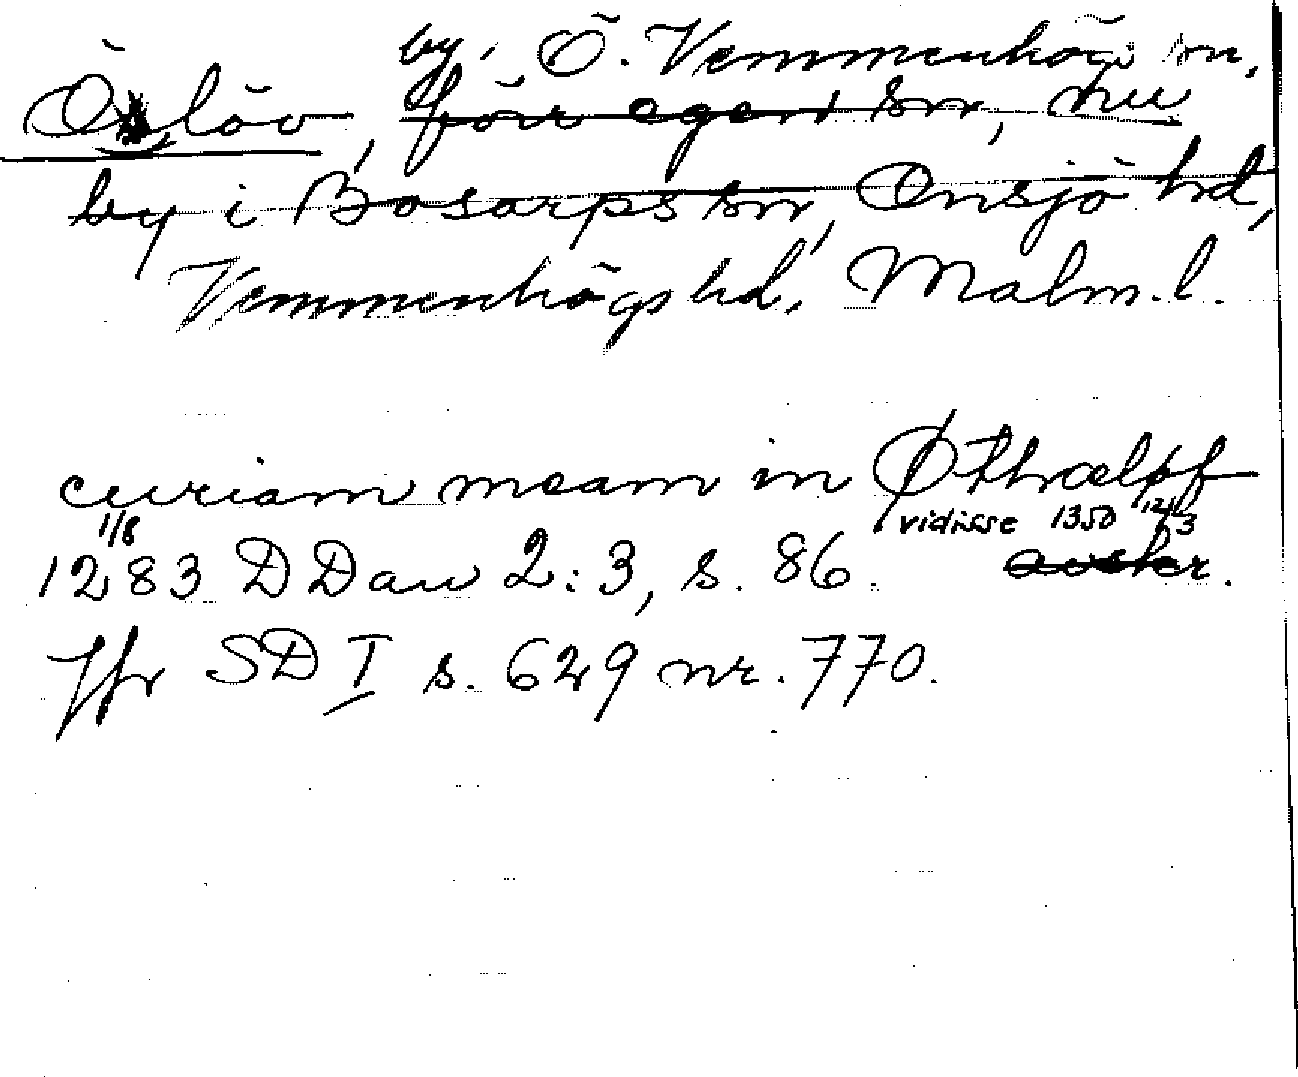 by, Ö. Vemmenhög sn,
Öslöv, förr egen sn, nu
by i Bosarps sn, Onsjö hd,
Vemmenhögs hd, Malm. l.
curiam meam in Øthrælpf
vidisse 1350 12/3
1/8
1283 DDan 2:3, s. 86. avskr.
Jfr SD I s. 629 nr. 770.